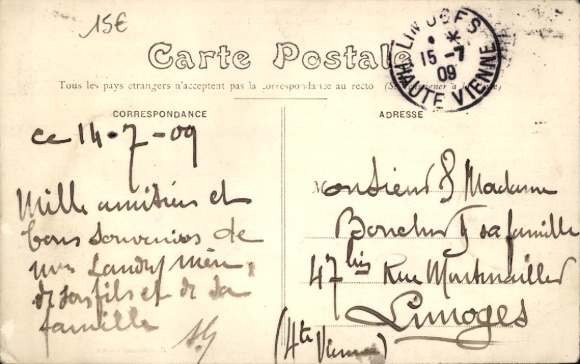 15€
Carte Postale
LIMOGES
15-7
09
HAUTE VIENNE
Tous les pays étrangers n'acceptent pas la correspondance au recto
CORRESPONDANCE
ADRESSE
ce 14-7-09
Mille amitiés et
bons souvenirs de
Landry mère,
de son fils et de sa
famille
Monsieur & Madame
& sa famille
47 bis Rue Montmailler
Limoges
(Hte Vienne)